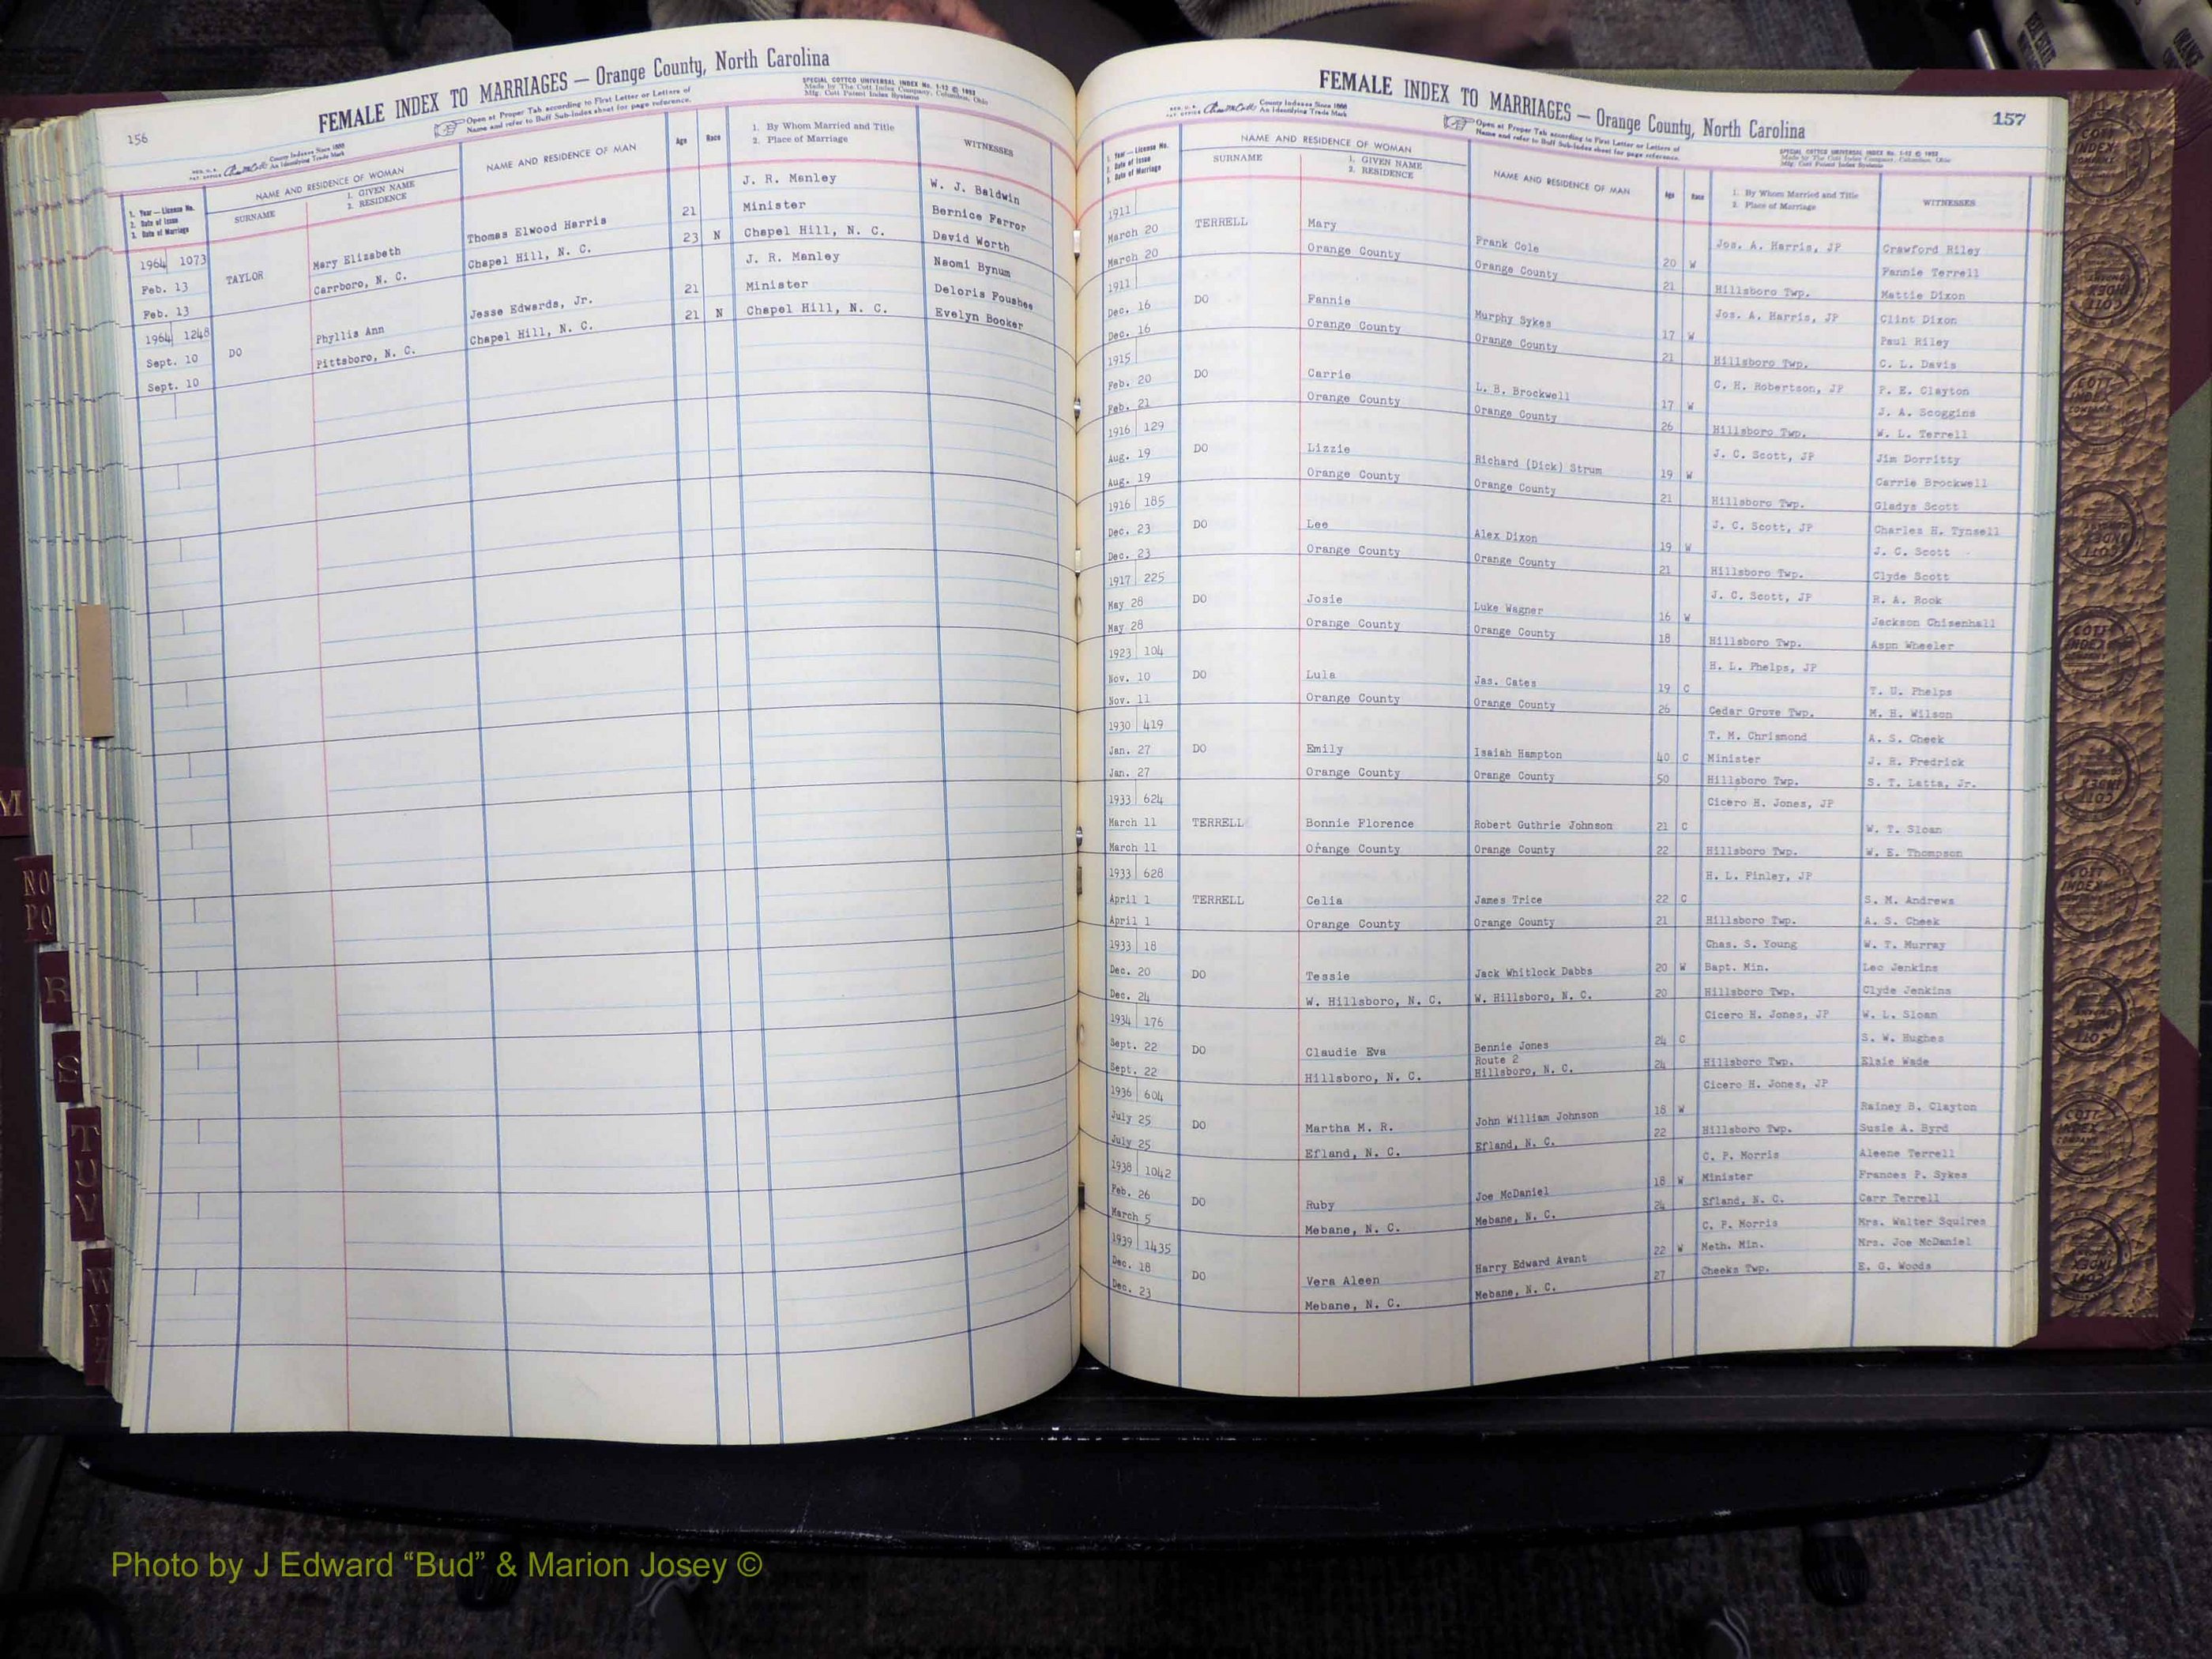 156
FEMALE INDEX TO MARRIAGES — Orange County, North Carolina
Open at Proper Tab according to First Letter or Letters of
Name and refer to Buff Sub-Index sheet for page reference.
SPECIAL COTTCO UNIVERSAL INDEX No. 1-12 © 1952
Made by The Cott Index Company, Columbus, Ohio
Mfg. Cott Patent Index Systems
County Indexes Since 1888
An Identifying Trade Mark
1. Year — License No.
2. Date of Issue
3. Date of Marriage
NAME AND RESIDENCE OF WOMAN
SURNAME
1. GIVEN NAME
2. RESIDENCE
NAME AND RESIDENCE OF MAN
Age
Race
1. By Whom Married and Title
2. Place of Marriage
WITNESSES
1964 1073 Mary Elizabeth Thomas Elwood Harris 21 J. R. Manley W. J. Baldwin
Feb. 13 TAYLOR Carrboro, N. C. Chapel Hill, N. C. 23 N Minister Bernice Farror
Feb. 13 Chapel Hill, N. C. David Worth
1964 1248 Phyllis Ann Jesse Edwards, Jr. 21 J. R. Manley Naomi Bynum
Sept. 10 DO Pittsboro, N. C. Chapel Hill, N. C. 21 N Minister Deloris Foushee
Sept. 10 Chapel Hill, N. C. Evelyn Booker
157
FEMALE INDEX TO MARRIAGES — Orange County, North Carolina
County Indexes Since 1888
An Identifying Trade Mark
Open at Proper Tab according to First Letter or Letters of
Name and refer to Buff Sub-Index sheet for page reference.
SPECIAL COTTCO UNIVERSAL INDEX No. 1-12 © 1952
Made by The Cott Index Company, Columbus, Ohio
Mfg. Cott Patent Index Systems
1. Year — License No.
2. Date of Issue
3. Date of Marriage
NAME AND RESIDENCE OF WOMAN
SURNAME
1. GIVEN NAME
2. RESIDENCE
NAME AND RESIDENCE OF MAN
Age
Race
1. By Whom Married and Title
2. Place of Marriage
WITNESSES
1911 Jos. A. Harris, JP Crawford Riley
March 20 TERRELL Mary Frank Cole 20 W Fannie Terrell
March 20 Orange County Orange County 21 Hillsboro Twp. Mattie Dixon
1911 Jos. A. Harris, JP Clint Dixon
Dec. 16 DO Fannie Murphy Sykes 17 W Paul Riley
Dec. 16 Orange County Orange County 21 Hillsboro Twp. C. L. Davis
1915 C. H. Robertson, JP P. E. Clayton
Feb. 20 DO Carrie L. B. Brockwell 17 W J. A. Scoggins
Feb. 21 Orange County Orange County 26 Hillsboro Twp. W. L. Terrell
1916 129 J. C. Scott, JP Jim Dorritty
Aug. 19 DO Lizzie Richard (Dick) Strum 19 W Carrie Brockwell
Aug. 19 Orange County Orange County 21 Hillsboro Twp. Gladys Scott
1916 185 J. C. Scott, JP Charles H. Tynsell
Dec. 23 DO Lee Alex Dixon 19 W J. C. Scott
Dec. 23 Orange County Orange County 21 Hillsboro Twp. Clyde Scott
1917 225 J. C. Scott, JP R. A. Rook
May 28 DO Josie Luke Wagner 16 W Jackson Chisenhall
May 28 Orange County Orange County 18 Hillsboro Twp. Aspn Wheeler
1923 104 H. L. Phelps, JP
Nov. 10 DO Lula Jas. Cates 19 C T. U. Phelps
Nov. 11 Orange County Orange County 26 Cedar Grove Twp. M. H. Wilson
1930 419 T. M. Chrismond A. S. Cheek
Jan. 27 DO Emily Isaiah Hampton 40 C Minister J. H. Fredrick
Jan. 27 Orange County Orange County 50 Hillsboro Twp. S. T. Latta, Jr.
1933 624 Cicero H. Jones, JP
March 11 TERRELL Bonnie Florence Robert Guthrie Johnson 21 C W. T. Sloan
March 11 Orange County Orange County 22 Hillsboro Twp. W. E. Thompson
1933 628 H. L. Finley, JP
April 1 TERRELL Celia James Trice 22 C S. M. Andrews
April 1 Orange County Orange County 21 Hillsboro Twp. A. S. Cheek
1933 18 Chas. S. Young W. T. Murray
Dec. 20 DO Tessie Jack Whitlock Dabbs 20 W Bapt. Min. Leo Jenkins
Dec. 24 W. Hillsboro, N. C. W. Hillsboro, N. C. 20 Hillsboro Twp. Clyde Jenkins
1934 176 Cicero H. Jones, JP W. L. Sloan
Sept. 22 DO Claudie Eva Bennie Jones 24 C S. W. Hughes
Route 2
Sept. 22 Hillsboro, N. C. Hillsboro, N. C. 24 Hillsboro Twp. Elsie Wade
1936 604 Cicero H. Jones, JP
July 25 DO Martha M. R. John William Johnson 18 W Rainey B. Clayton
July 25 Efland, N. C. Efland, N. C. 22 Hillsboro Twp. Susie A. Byrd
1938 1042 C. P. Morris Aleene Terrell
Feb. 26 DO Ruby Joe McDaniel 18 W Minister Frances P. Sykes
March 5 Mebane, N. C. Mebane, N. C. 24 Efland, N. C. Carr Terrell
1939 1435 C. P. Morris Mrs. Walter Squires
Dec. 18 DO Vera Aleen Harry Edward Avant 22 W Meth. Min. Mrs. Joe McDaniel
Dec. 23 Mebane, N. C. Mebane, N. C. 27 Cheeks Twp. E. G. Woods
M
NO
PQ
R
S
T
U
V
W
Photo by J Edward “Bud” & Marion Josey ©